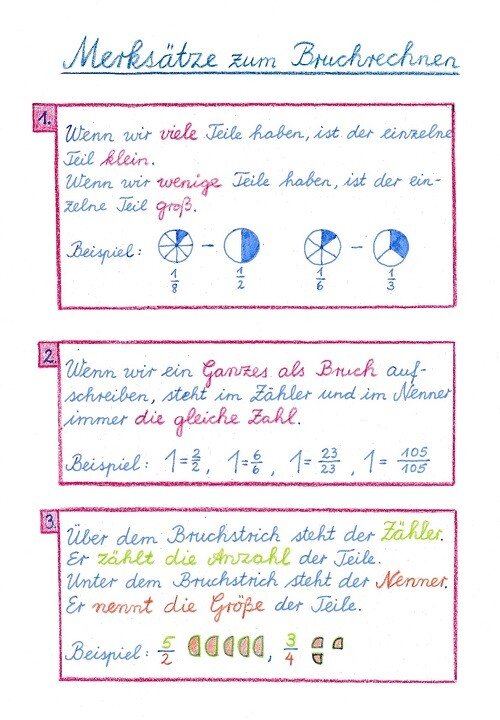 Merksätze zum Bruchrechnen
1.
Wenn wir viele Teile haben, ist der einzelne
Teil klein.
Wenn wir wenige Teile haben, ist der ein-
zelne Teil groß.
Beispiel: 1/8 - 1/2 1/6 - 1/3
2.
Wenn wir ein Ganzes als Bruch auf-
schreiben, steht im Zähler und im Nenner
immer die gleiche Zahl.
Beispiel: 1=2/2, 1=6/6, 1=23/23, 1=105/105
3.
Über dem Bruchstrich steht der Zähler.
Er zählt die Anzahl der Teile.
Unter dem Bruchstrich steht der Nenner.
Er nennt die Größe der Teile.
Beispiel: 5/2, 3/4